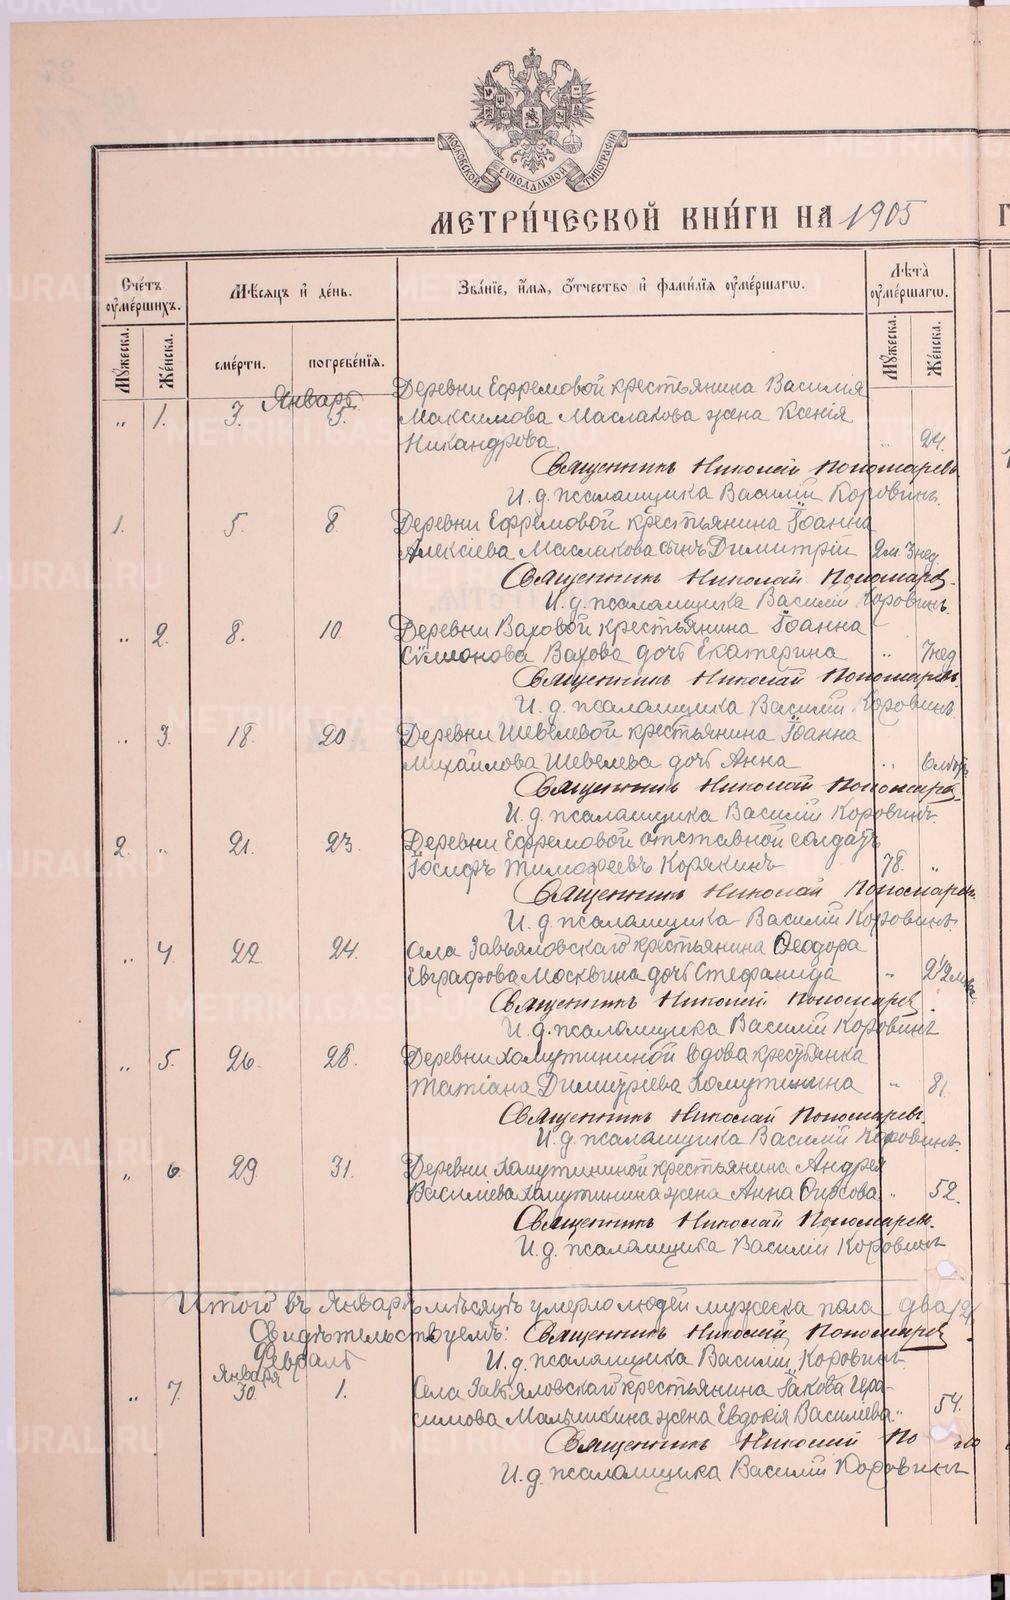 МОСКОВСКОЙ СУНОДАЛЬНОЙ ТИПОГРАФІИ
МЕТРИ́ЧЕСКОЙ КНИ́ГИ НА 1905
Сче́тъ ᲂу҆ме́ршихъ.
Мѣ́сяцъ и҆ де́нь.
Зва́нїе, и҆́мя, ѻ҆́тчество и҆ фами́лїя ᲂу҆ме́ршагѡ.
Лѣ́та ᲂу҆ме́ршагѡ.
Мꙋ́жеска.
Же́нска.
сме́рти.
погребе́нїя.
Мꙋ́жеска.
Же́нска.
Январь
Деревни Ефремовой крестьянина Василія
„ 1. 3. 5. Максимова Маслакова жена Ксенія
Никандрова. „ 24.
Священникъ Николай Пономаревъ.
И. д. псаломщика Василій Коровинъ.
1. 5. 8. Деревни Ефремовой крестьянина Іоанна
Алексіева Маслакова сынъ Димитрій 2 м. 3 нед
Священникъ Николай Пономарев.
И. д. псаломщика Василій Коровинъ.
„ 2. 8. 10. Деревни Ваховой крестьянина Іоанна
Сѵмеонова Вахова дочь Екатерина „ 7 нед
Священникъ Николай Пономаревъ.
И. д. псаломщика Василій Коровинъ
„ 3. 18. 20. Деревни Шевелевой крестьянина Іоанна
Михайлова Шевелева дочь Анна „ 6 лѣтъ
Священникъ Николай Пономарев.
И. д. псаломщика Василій Коровинъ.
2. „ 21. 23. Деревни Ефремовой отставной солдатъ
Іосифъ Тимофеевъ Корякинъ 78. „
Священникъ Николай Пономарев.
И. д. псаломщика Василій Коровинъ
„ 4. 22 24. Села Завьяловскаго крестьянина Ѳеодора
Евграфова Москвина дочь Стефанида „ 2 1/2
Священникъ Николай Пономарев.
И. д. псаломщика Василій Коровинъ
„ 5. 26. 28. Деревни Хомутининой вдова крестьянка
Татіана Димитріева Хомутинина „ 81.
Священникъ Николай Пономаревъ.
И. д. псаломщика Василій Коровинъ.
„ 6 29 31. Деревни Хамутининой крестьянина Андрея
Василіева Хамутинина жена Анна Фирсова. „ 52.
Священникъ Николай Пономарев.
И. д. псаломщика Василій Коровинъ
Итого въ Январѣ мѣсяцѣ умерло людей мужеска пола два /2/
Свидѣтельствуемъ: Священникъ Николай Пономарев.
Февраль
И. д. псаломщика Василій Коровинъ.
Января
„ 7. 30. 1. Села Завьяловскаго крестьянина Іакова Гера-
симова Малышкина жена Евдокія Василіева „ 54.
Священникъ Николай По
И. д. псаломщика Василій Коровинъ
METRIKI.GASO-URAL.RU